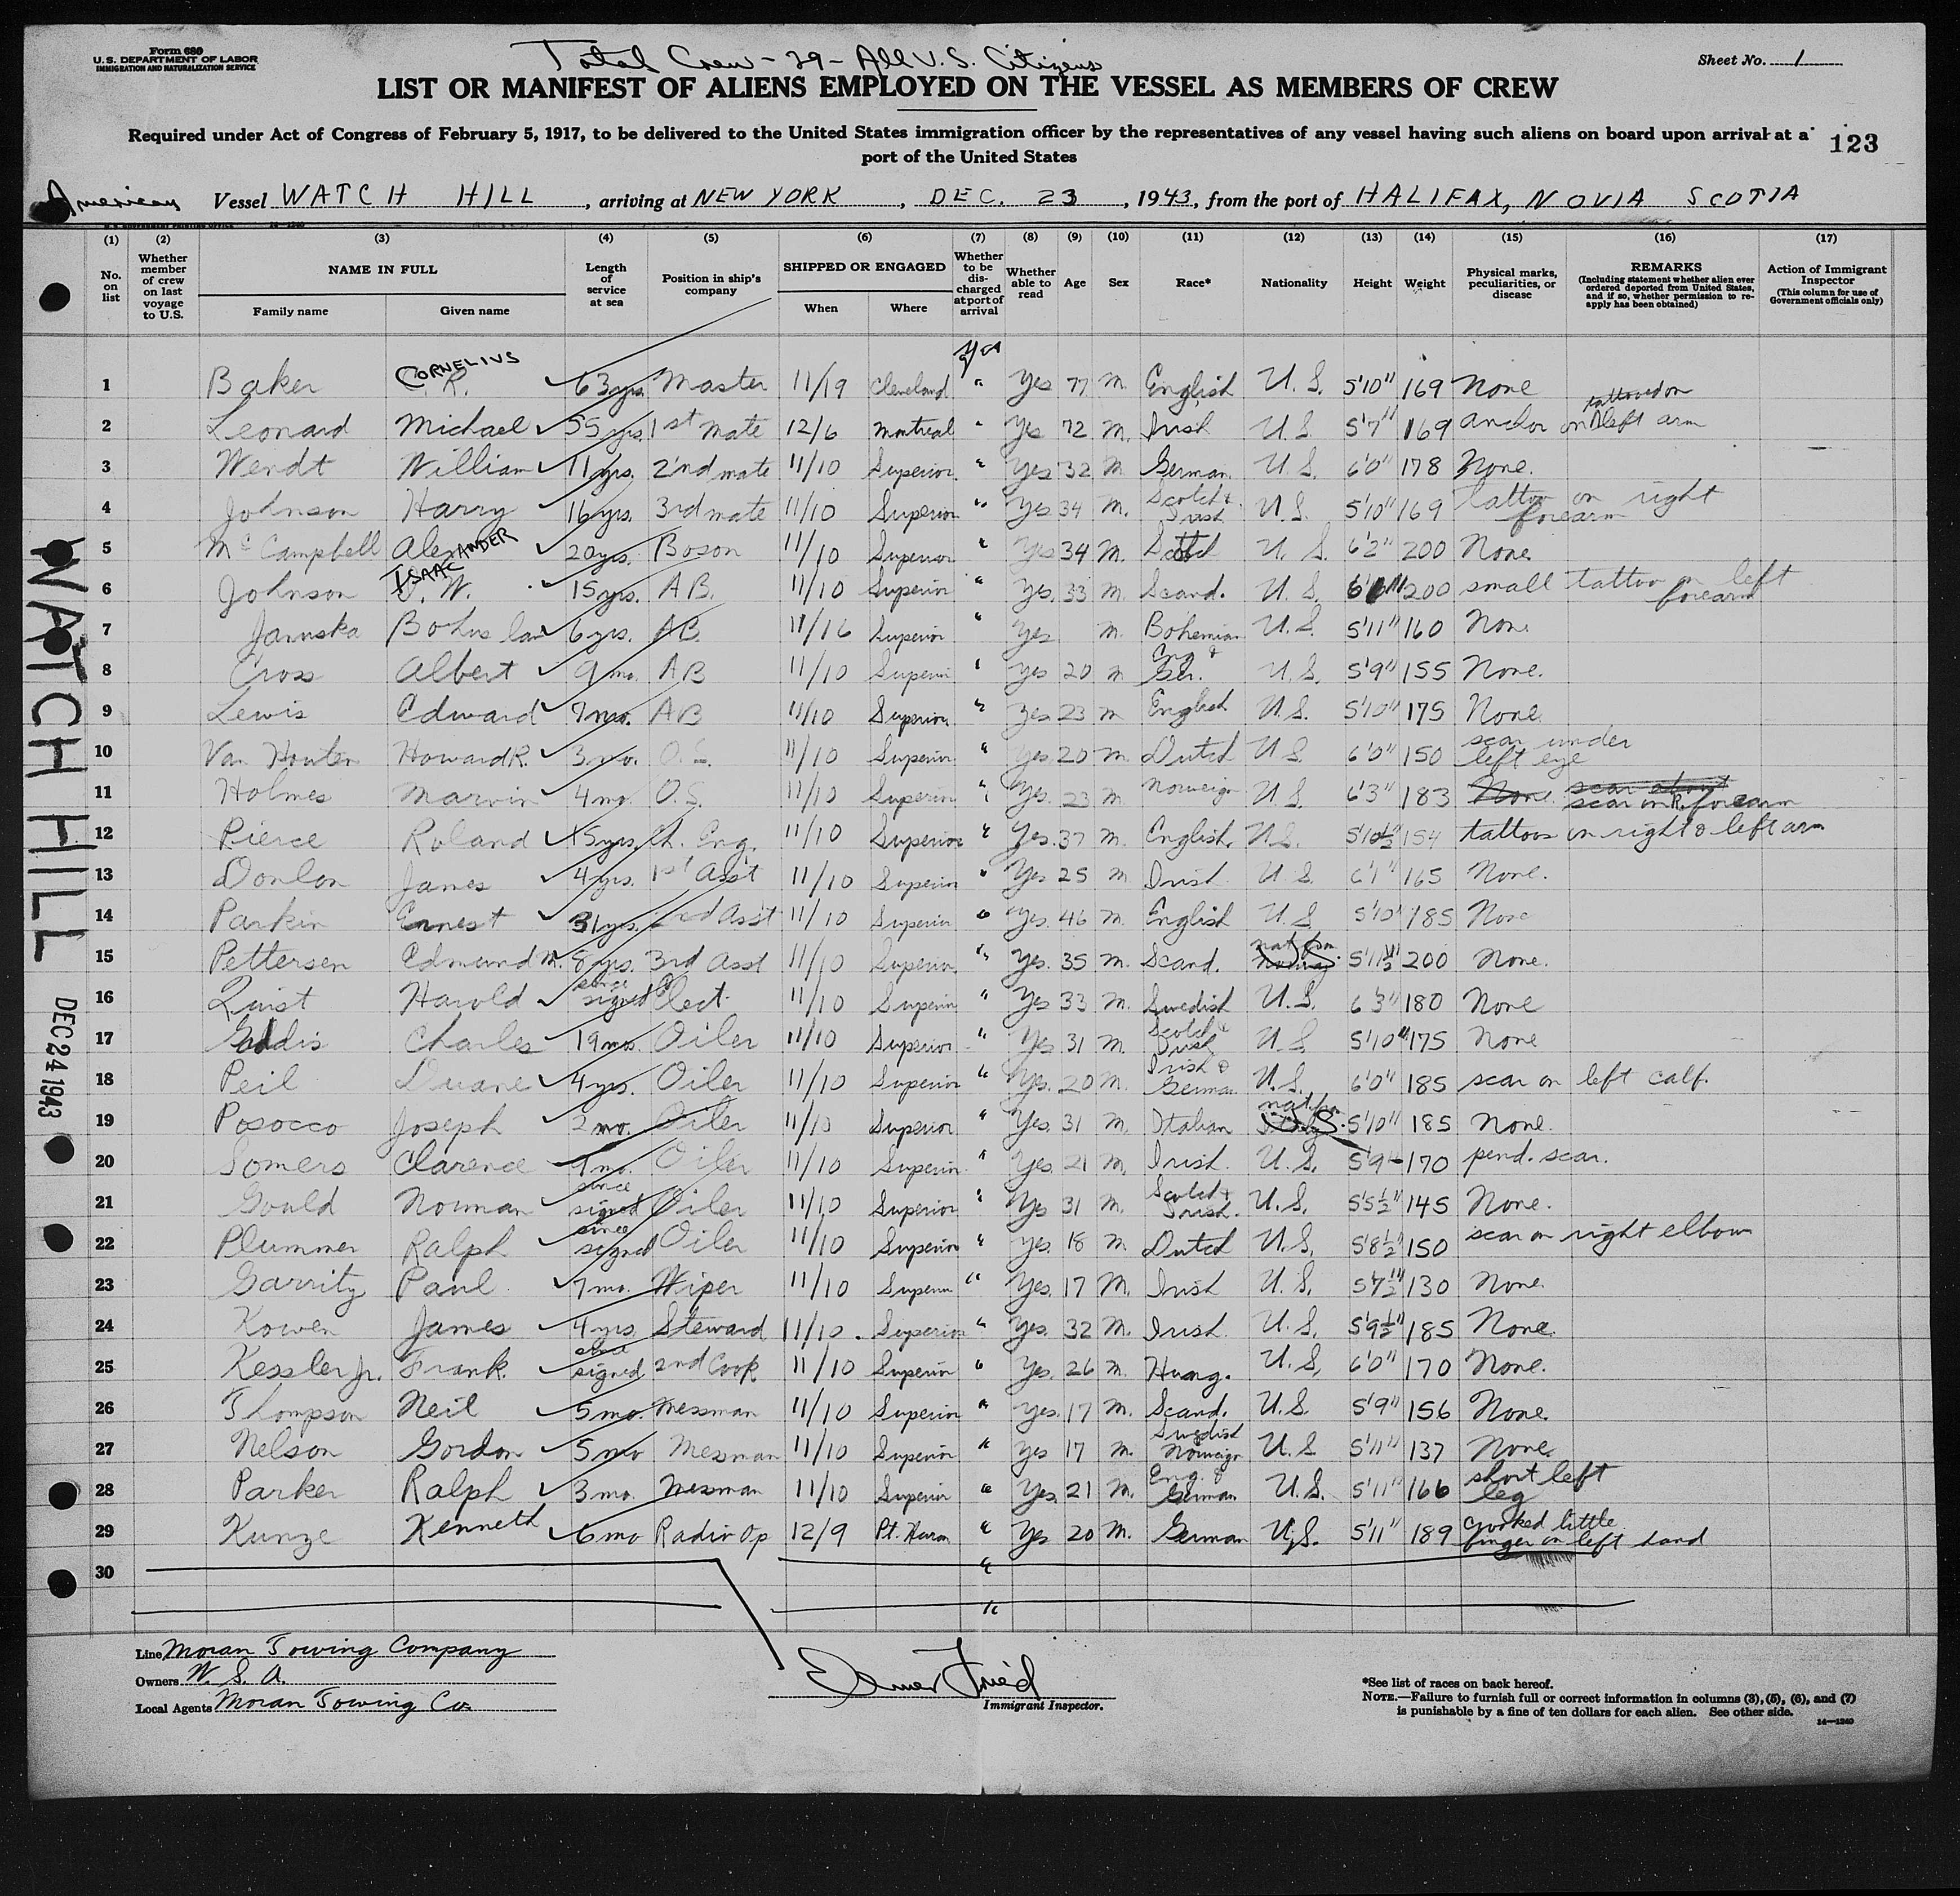 Form 680
U.S. DEPARTMENT OF LABOR
IMMIGRATION AND NATURALIZATION SERVICE
Total Crew - 29 - All U.S. Citizens
Sheet No. 1
LIST OR MANIFEST OF ALIENS EMPLOYED ON THE VESSEL AS MEMBERS OF CREW
Required under Act of Congress of February 5, 1917, to be delivered to the United States immigration officer by the representatives of any vessel having such aliens on board upon arrival at a
port of the United States
123
American Vessel WATCH HILL, arriving at NEW YORK, DEC. 23, 1943, from the port of HALIFAX, NOVIA SCOTIA
(1) (2) (3) (4) (5) (6) (7) (8) (9) (10) (11) (12) (13) (14) (15) (16) (17)
No. on list
Whether member of crew on last voyage to U.S.
NAME IN FULL
Family name Given name
Length of service at sea
Position in ship's company
SHIPPED OR ENGAGED
When Where
Whether to be discharged at port of arrival
Whether able to read
Age Sex Race* Nationality Height Weight
Physical marks, peculiarities, or disease
REMARKS
(Including statement whether alien ever ordered deported from United States, and if so, whether permission to reapply has been obtained)
Action of Immigrant Inspector
(This column for use of Government officials only)
yes
1 Baker CORNELIUS C. R. 63 yrs. Master 11/19 Cleveland " Yes 77 M. English U. S. 5'10" 169 None
2 Leonard Michael 55 yrs 1st mate 12/6 Montreal " Yes 72 M. Irish U. S. 5'7" 169 anchor tattooed on left arm
3 Wendt William 11 yrs. 2nd mate 11/10 Superior " Yes 32 M. German U. S. 6'0" 178 None.
4 Johnson Harry 16 yrs. 3rd mate 11/10 Superior " Yes 34 M. Scotch & Irish U. S. 5'10" 169 tattoo on right forearm
5 McCampbell AlexANDER 20 yrs. Boson 11/10 Superior " Yes 34 M. Scotch U. S. 6'2" 200 None
6 Johnson ISAAC W. 15 yrs. A B. 11/10 Superior " Yes. 33 M. Scand. U. S. 200 small tattoo on left forearm
7 6 yrs. AB. 11/16 Superior " Yes M. Bohemian U. S. 5'11" 160 None
8 Cross Albert 9 mo. AB 11/10 Superior " Yes 20 M Eng & Ger. U. S. 5'9" 155 None.
9 Lewis Edward 7 mo. AB 11/10 Superior " Yes 23 M English U. S. 5'10" 175 None
10 Van Houten Howard R. 3 mo. O. S. 11/10 Superior " Yes 20 M Dutch U S 6'0" 150 scar under left eye
11 Holmes Marvin 4 mo. O. S. 11/10 Superior " Yes. 23 M Norweign U. S. 6'3" 183 None scar about scar on R. forearm
12 Pierce Roland 15 yrs. Ch. Eng. 11/10 Superior " Yes. 37 M. English. U. S. 5'10½" 154 tattoos on right & left arm
13 Donlon James 4 yrs. 1st Ass't 11/10 Superior " Yes 25 M Irish U. S. 6'1" 165 None.
14 Parkin Ernest 31 yrs. 2nd Ass't 11/10 Superior " Yes. 46 M. English U. S. 5'10" 185 None
15 Pettersen Edmund M. 8 yrs. 3rd Asst 11/10 Superior " Yes. 35 M. Scand. U.S. 5'11½" 200 None.
16 Quist Harold since signed Elect. 11/10 Superior " Yes 33 M. Swedish U. S. 6'3" 180 None
17 Charles 19 mo. Oiler 11/10 Superior " Yes 31 M. Scotch & Irish U. S 5'10" 175 None
18 Peil Duane 4 yrs. Oiler 11/10 Superior " Yes. 20 M. Irish & German U. S. 6'0" 185 scar on left calf.
19 Posocco Joseph 2 mo. Oiler 11/10 Superior " Yes. 31 M. Italian U.S. 5'10" 185 None.
20 Somers Clarence 9 mo. Oiler 11/10 Superior " Yes. 21 M. Irish. U. S. 5'9" 170 pend. scar.
21 Gould Norman since signed Oiler 11/10 Superior " Yes 31 M. Scotch & Irish. U. S. 5'5½" 145 None.
22 Plummer Ralph since signed Oiler 11/10 Superior " Yes. 18 M Dutch U. S. 5'8½" 150 scar on right elbow
23 Garrity Paul 7 mo. Wiper 11/10 Superior " Yes. 17 M. Irish U. S. 5'7½" 130 None.
24 Kowen James 4 yrs. Steward 11/10. Superior " Yes. 32 M. Irish. U. S. 5'9½" 185 None.
25 Kessler Jr. Frank. since signed 2nd Cook 11/10 Superior " Yes. 26 M. Hung. U. S. 6'0" 170 None.
26 Thompson Neil 5 mo. Messman 11/10 Superior " Yes. 17 M. Scand. U. S. 5'9" 156 None.
27 Nelson Gordon 5 mo Mesman 11/10 Superior " Yes 17 M. Swedish Norweign U. S 5'11" 137 None.
28 Parker Ralph 3 mo. Messman 11/10 Superior " Yes. 21 M. Eng. & German U. S. 5'11" 166 short left leg
29 Kunze Kenneth 6 mo Radio Op 12/9 Pt. Huron " Yes 20 M. German U.S. 5'11" 189 crooked little finger on left hand
30 "
"
WATCH HILL
DEC 24 1943
Line Moran Towing Company
Owners W. S. A.
Local Agents Moran Towing Co.
Elmer Fried
Immigrant Inspector.
*See list of races on back hereof.
NOTE.—Failure to furnish full or correct information in columns (3), (5), (6), and (7)
is punishable by a fine of ten dollars for each alien. See other side.
14—1240